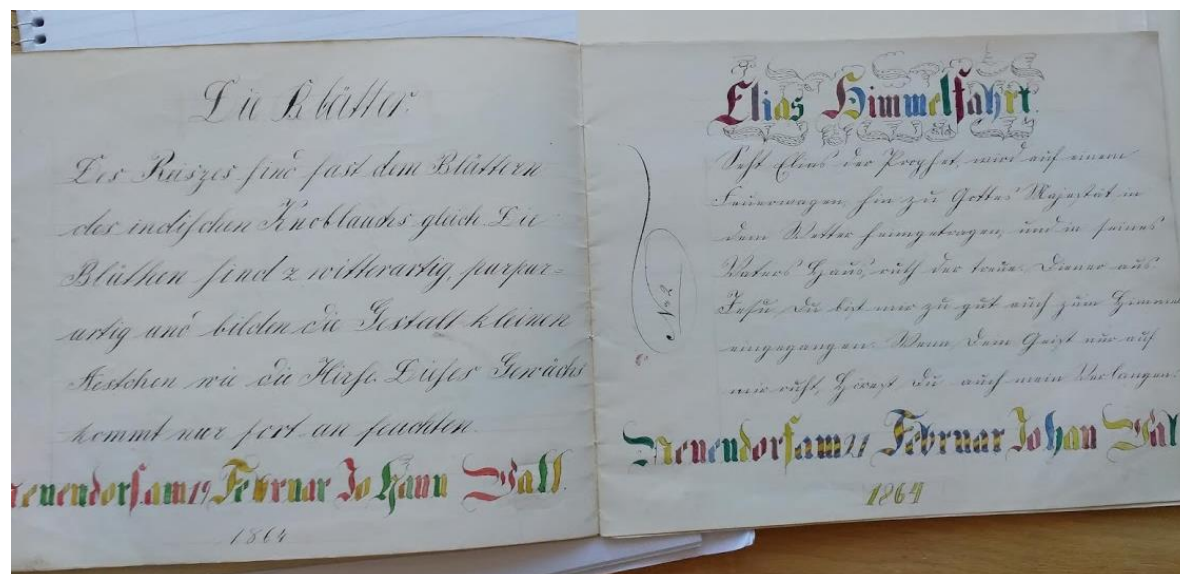 Die Blätter.
Des Reiszes sind fast dem Blättern
des indischen Knoblauchs gleich. Die
Blüthen sind zwitterartig, purpur=
artig und bilden die Gestalt kleinen
Aestchen wie die Hirse. Dieses Gewächs
kommt nur fort an feuchten.
Neuendorf. am 19 Februar Johann Wall.
1864
Elias Himmelfahrt.
Seht Elias der Prophet, wird auf einem
Feuerwagen hin zu Gottes Majestät in
dem Wetter heimgetragen, und in seines
Vaters Haus, ruth der treue Diener aus
Jesu, Du bist mir zu gut auch zum Himmel
eingegangen. Wenn Dein Geist nur auf
mir ruht, Hörest Du auch mein Verlangen.
No 2
Neuendorf am 21 Februar Johan Wal
1864